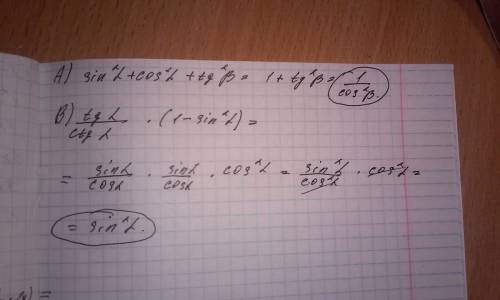 A) sin²α + cos²α + tg²β = 1 + tg²β = 1/cos²β.
B) tgα/ctgα · (1 - sin²α) =
= sinα/cosα · sinα/cosα · cos²α = sin²α/cos²α · cos²α =
= sin²α.